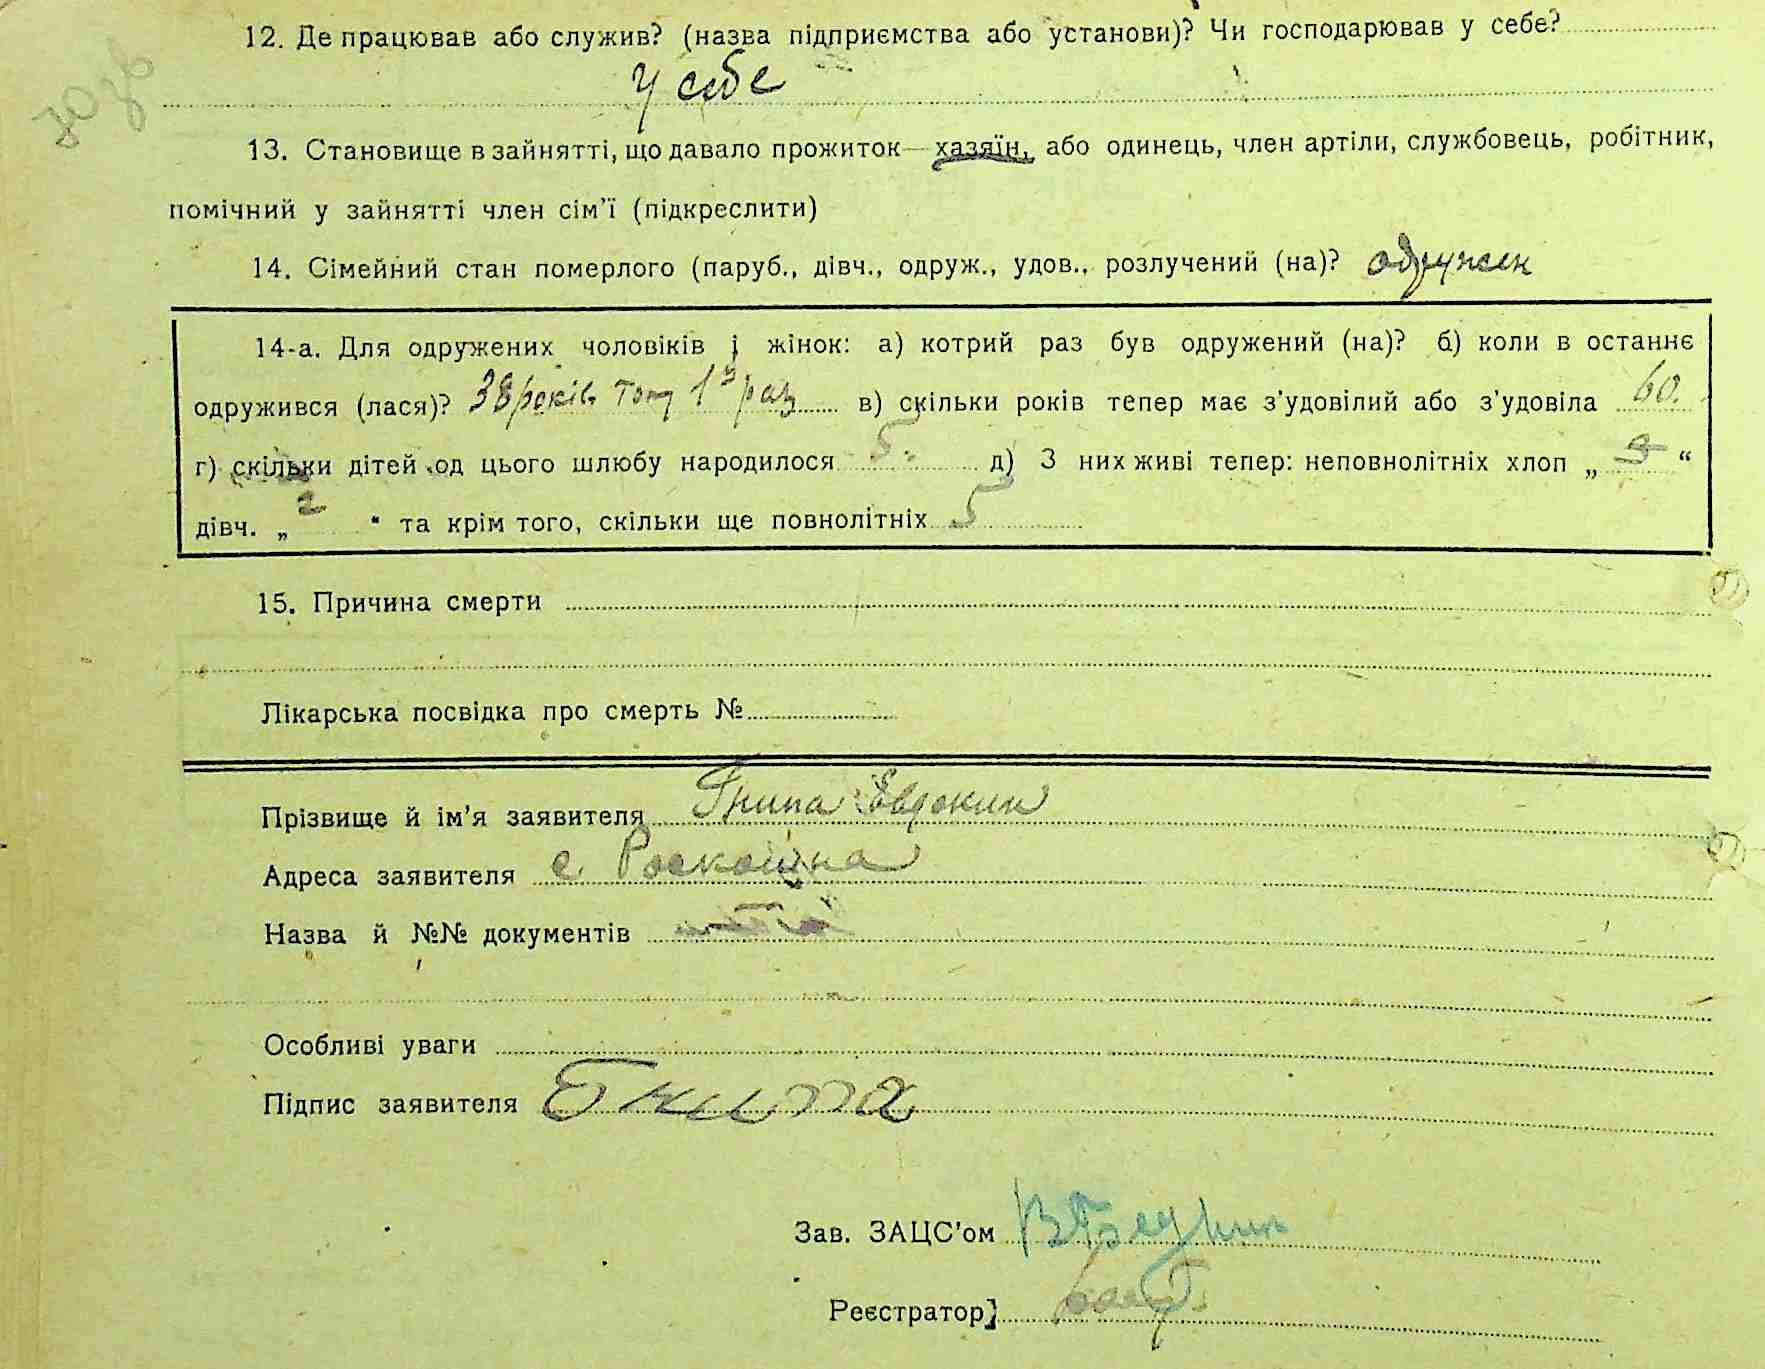 12. Де працював або служив? (назва підприємства або установи)? Чи господарював у себе?
У себе
13. Становище в зайнятті, що давало прожиток— хазяїн, або одинець, член артіли, службовець, робітник,
помічний у зайнятті член сім'ї (підкреслити)
14. Сімейний стан померлого (паруб., дівч., одруж., удов., розлучений (на)? одружен
14-а. Для одружених чоловіків і жінок: а) котрий раз був одружений (на)? б) коли в останнє
одружився (лася)? 38 років тому 1й раз в) скільки років тепер має з'удовілий або з'удовіла 60.
г) скільки дітей од цього шлюбу народилося 5. д) З них живі тепер: неповнолітніх хлоп „ 3 “
дівч. „ 2 “ та крім того, скільки ще повнолітніх 5
15. Причина смерти
Лікарська посвідка про смерть №
Прізвище й ім'я заявителя Гнипа Евдоким
Адреса заявителя с Роскошна
Назва й №№ документів
Особливі уваги
Підпис заявителя Гнипа
Зав. ЗАЦС'ом
Реєстратор